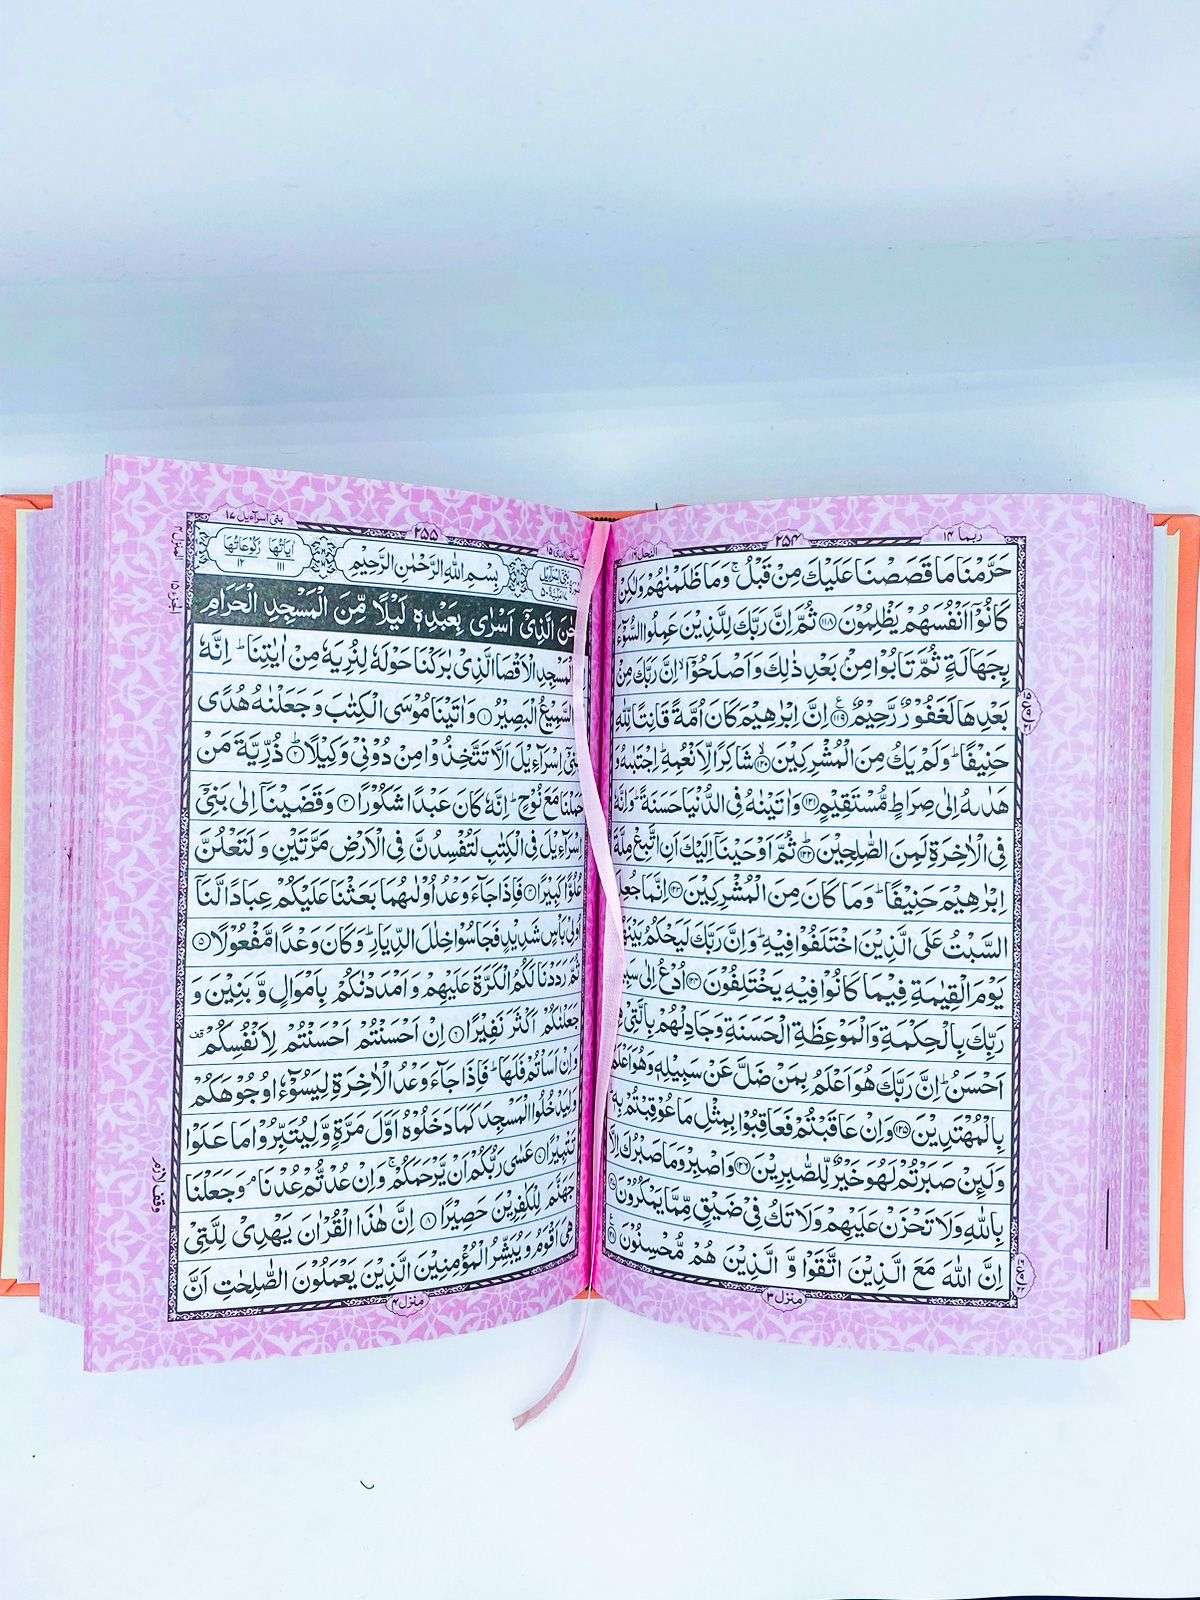 النحل ١٦
٢٥٤
ربما ١٤
حَرَّمْنَا مَا قَصَصْنَا عَلَيْكَ مِنْ قَبْلُ ۚ وَمَا ظَلَمْنٰهُمْ وَلٰكِنْ
كَانُوْۤا اَنْفُسَهُمْ يَظْلِمُوْنَ ﴿١١٨﴾ ثُمَّ اِنَّ رَبَّكَ لِلَّذِيْنَ عَمِلُوا السُّوْٓءَ
بِجَهَالَةٍ ثُمَّ تَابُوْا مِنْۢ بَعْدِ ذٰلِكَ وَاَصْلَحُوْۤا ۙ اِنَّ رَبَّكَ مِنْۢ
بَعْدِهَا لَغَفُوْرٌ رَّحِيْمٌ ﴿١١٩﴾ اِنَّ اِبْرٰهِيْمَ كَانَ اُمَّةً قَانِتًا لِّلّٰهِ
حَنِيْفًا ؕ وَلَمْ يَكُ مِنَ الْمُشْرِكِيْنَ ﴿١٢٠﴾ شَاكِرًا لِّاَنْعُمِهٖ ؕ اِجْتَبٰىهُ وَ
هَدٰىهُ اِلٰى صِرَاطٍ مُّسْتَقِيْمٍ ﴿١٢١﴾ وَاٰتَيْنٰهُ فِى الدُّنْيَا حَسَنَةً ؕ وَاِنَّهٗ
فِى الْاٰخِرَةِ لَمِنَ الصّٰلِحِيْنَ ﴿١٢٢﴾ ثُمَّ اَوْحَيْنَاۤ اِلَيْكَ اَنِ اتَّبِعْ مِلَّةَ
اِبْرٰهِيْمَ حَنِيْفًا ؕ وَمَا كَانَ مِنَ الْمُشْرِكِيْنَ ﴿١٢٣﴾ اِنَّمَا جُعِلَ
السَّبْتُ عَلَى الَّذِيْنَ اخْتَلَفُوْا فِيْهِ ؕ وَاِنَّ رَبَّكَ لَيَحْكُمُ بَيْنَهُمْ
يَوْمَ الْقِيٰمَةِ فِيْمَا كَانُوْا فِيْهِ يَخْتَلِفُوْنَ ﴿١٢٤﴾ اُدْعُ اِلٰى سَبِيْلِ
رَبِّكَ بِالْحِكْمَةِ وَالْمَوْعِظَةِ الْحَسَنَةِ وَجَادِلْهُمْ بِالَّتِيْ هِيَ
اَحْسَنُ ؕ اِنَّ رَبَّكَ هُوَ اَعْلَمُ بِمَنْ ضَلَّ عَنْ سَبِيْلِهٖ وَهُوَ اَعْلَمُ
بِالْمُهْتَدِيْنَ ﴿١٢٥﴾ وَاِنْ عَاقَبْتُمْ فَعَاقِبُوْا بِمِثْلِ مَا عُوْقِبْتُمْ بِهٖ ؕ
وَلَئِنْ صَبَرْتُمْ لَهُوَ خَيْرٌ لِّلصّٰبِرِيْنَ ﴿١٢٦﴾ وَاصْبِرْ وَمَا صَبْرُكَ اِلَّا
بِاللّٰهِ وَلَا تَحْزَنْ عَلَيْهِمْ وَلَا تَكُ فِيْ ضَيْقٍ مِّمَّا يَمْكُرُوْنَ ﴿١٢٧﴾
اِنَّ اللّٰهَ مَعَ الَّذِيْنَ اتَّقَوْا وَّ الَّذِيْنَ هُمْ مُّحْسِنُوْنَ ﴿١٢٨﴾
منزل ٣
بنی اسرآءیل ١٧
٢٥٥
بِسْمِ اللّٰهِ الرَّحْمٰنِ الرَّحِيْمِ
اٰيَاتُهَا ١١١ رُكُوْعَاتُهَا ١٢
الَّذِيْۤ اَسْرٰى بِعَبْدِهٖ لَيْلًا مِّنَ الْمَسْجِدِ الْحَرَامِ
الْمَسْجِدِ الْاَقْصَا الَّذِيْ بٰرَكْنَا حَوْلَهٗ لِنُرِيَهٗ مِنْ اٰيٰتِنَا ؕ اِنَّهٗ
السَّمِيْعُ الْبَصِيْرُ ﴿١﴾ وَاٰتَيْنَا مُوْسَى الْكِتٰبَ وَجَعَلْنٰهُ هُدًى
لِّبَنِيْۤ اِسْرَآءِيْلَ اَلَّا تَتَّخِذُوْا مِنْ دُوْنِيْ وَكِيْلًا ﴿٢﴾ ذُرِّيَّةَ مَنْ
حَمَلْنَا مَعَ نُوْحٍ ؕ اِنَّهٗ كَانَ عَبْدًا شَكُوْرًا ﴿٣﴾ وَقَضَيْنَاۤ اِلٰى بَنِيْۤ
اِسْرَآءِيْلَ فِى الْكِتٰبِ لَتُفْسِدُنَّ فِى الْاَرْضِ مَرَّتَيْنِ وَلَتَعْلُنَّ
عُلُوًّا كَبِيْرًا ﴿٤﴾ فَاِذَا جَآءَ وَعْدُ اُوْلٰىهُمَا بَعَثْنَا عَلَيْكُمْ عِبَادًا لَّنَاۤ
اُولِيْ بَاْسٍ شَدِيْدٍ فَجَاسُوْا خِلٰلَ الدِّيَارِ ؕ وَكَانَ وَعْدًا مَّفْعُوْلًا ﴿٥﴾
ثُمَّ رَدَدْنَا لَكُمُ الْكَرَّةَ عَلَيْهِمْ وَاَمْدَدْنٰكُمْ بِاَمْوَالٍ وَّبَنِيْنَ وَ
جَعَلْنٰكُمْ اَكْثَرَ نَفِيْرًا ﴿٦﴾ اِنْ اَحْسَنْتُمْ اَحْسَنْتُمْ لِاَنْفُسِكُمْ
وَاِنْ اَسَاْتُمْ فَلَهَا ؕ فَاِذَا جَآءَ وَعْدُ الْاٰخِرَةِ لِيَسُوْٓءٗا وُجُوْهَكُمْ
وَلِيَدْخُلُوا الْمَسْجِدَ كَمَا دَخَلُوْهُ اَوَّلَ مَرَّةٍ وَّلِيُتَبِّرُوْا مَا عَلَوْا
تَتْبِيْرًا ﴿٧﴾ عَسٰى رَبُّكُمْ اَنْ يَّرْحَمَكُمْ ۚ وَاِنْ عُدْتُّمْ عُدْنَا ۘ وَجَعَلْنَا
جَهَنَّمَ لِلْكٰفِرِيْنَ حَصِيْرًا ﴿٨﴾ اِنَّ هٰذَا الْقُرْاٰنَ يَهْدِيْ لِلَّتِيْ
هِيَ اَقْوَمُ وَيُبَشِّرُ الْمُؤْمِنِيْنَ الَّذِيْنَ يَعْمَلُوْنَ الصّٰلِحٰتِ اَنَّ
منزل ٤
وقف لازم